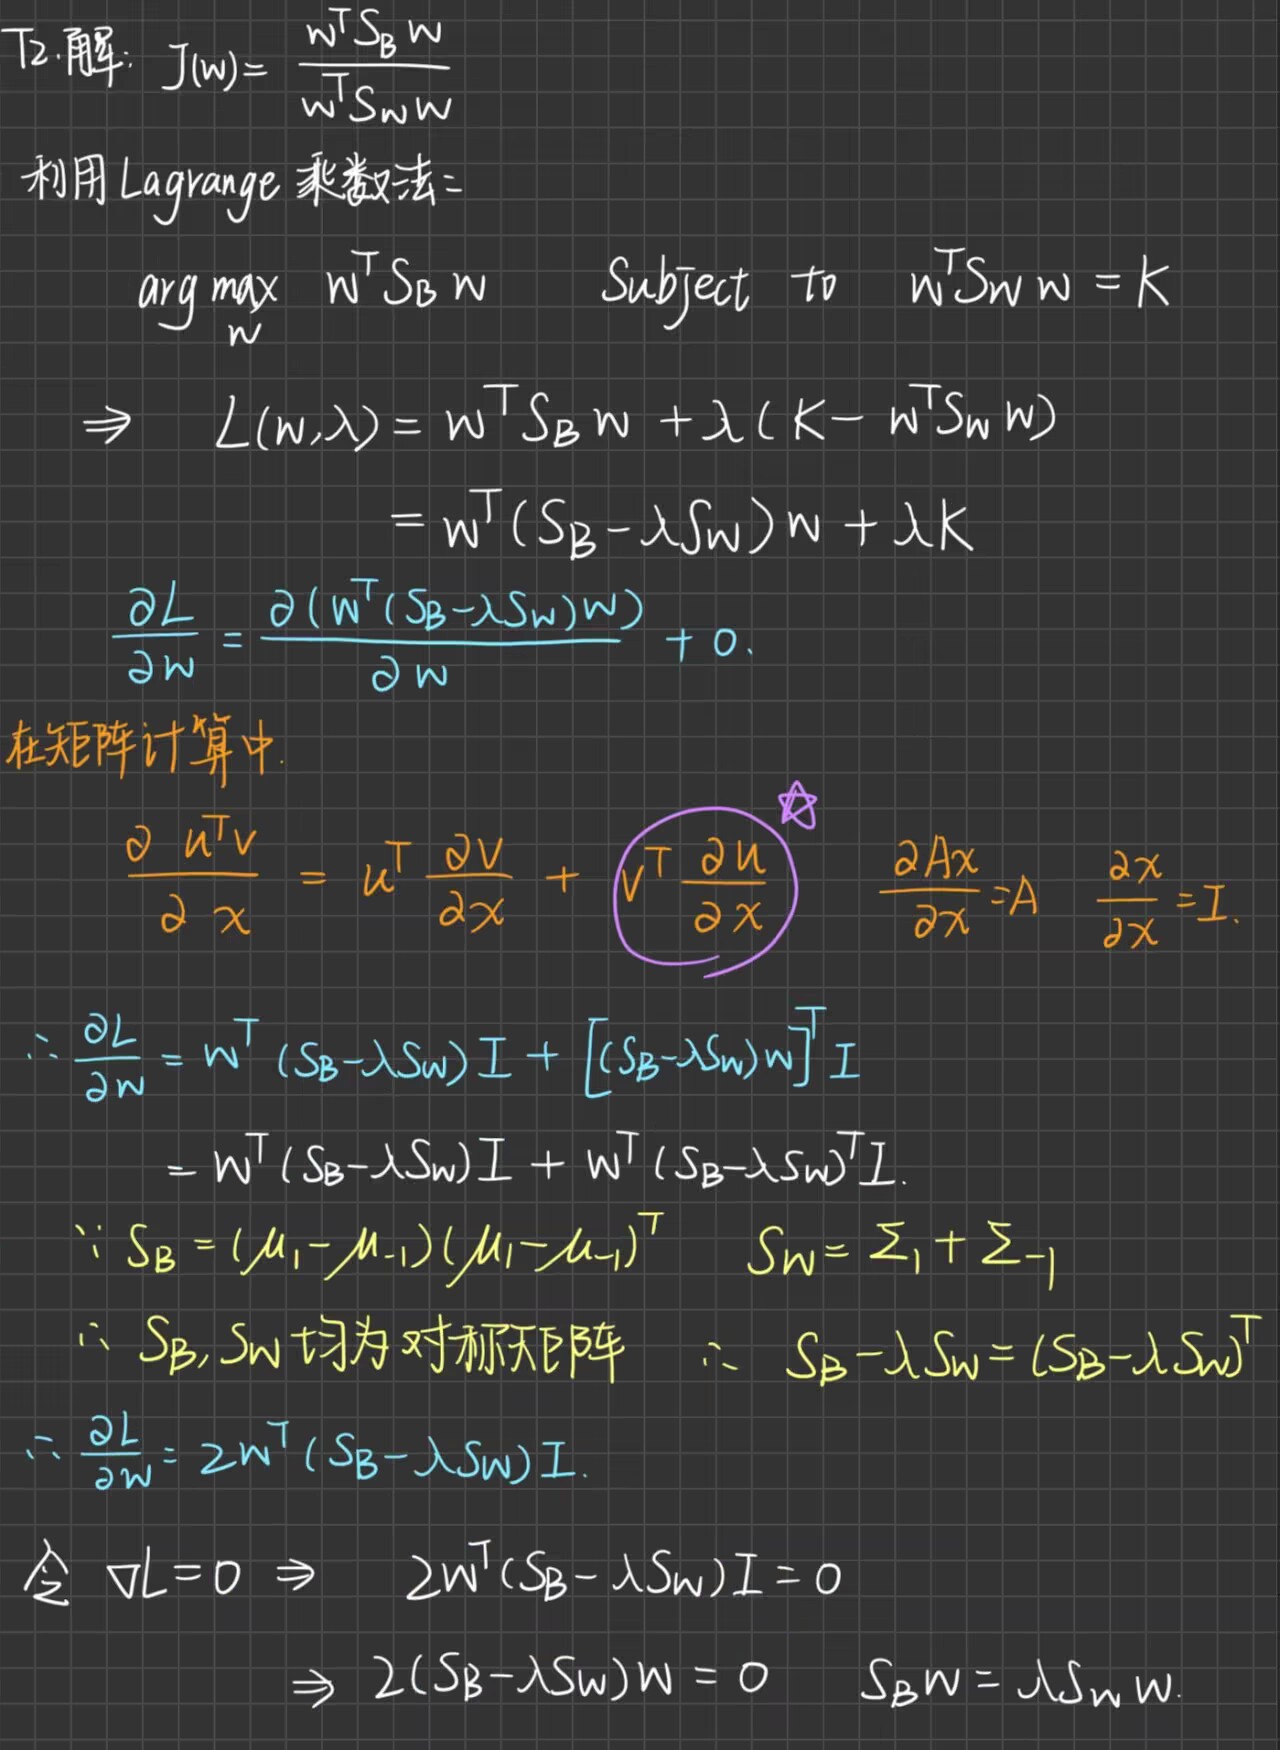 T2.解: J(w)= wᵀS_B w / wᵀS_W w
利用Lagrange 乘数法:
arg max_w wᵀS_B w Subject to wᵀS_W w = K
⇒ L(w,λ) = wᵀS_B w + λ(K − wᵀS_W w)
= wᵀ(S_B − λS_W)w + λK
∂L/∂w = ∂(wᵀ(S_B−λS_W)w)/∂w + 0.
在矩阵计算中.
∂uᵀv/∂x = uᵀ ∂v/∂x + vᵀ ∂u/∂x ∂Ax/∂x = A ∂x/∂x = I.
∴ ∂L/∂w = wᵀ(S_B−λS_W)I + [(S_B−λS_W)w]ᵀ I
= wᵀ(S_B−λS_W)I + wᵀ(S_B−λS_W)ᵀI.
∵ S_B = (μ₁−μ₋₁)(μ₁−μ₋₁)ᵀ S_W = Σ₁ + Σ₋₁
∴ S_B, S_W 均为对称矩阵 ∴ S_B−λS_W = (S_B−λS_W)ᵀ
∴ ∂L/∂w = 2wᵀ(S_B−λS_W)I.
令 ∇L=0 ⇒ 2wᵀ(S_B−λS_W)I = 0
⇒ 2(S_B−λS_W)w = 0 S_B w = λS_W w.